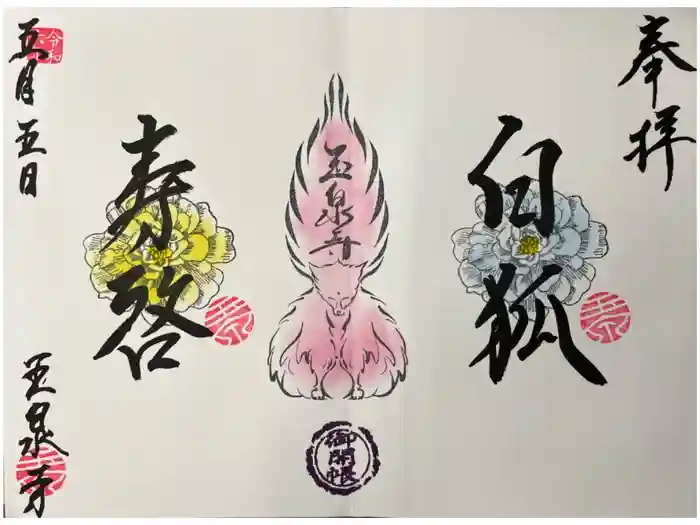 奉拝
白狐
玉泉寺
御開帳
寿啓
令和
五月五日
玉泉寺